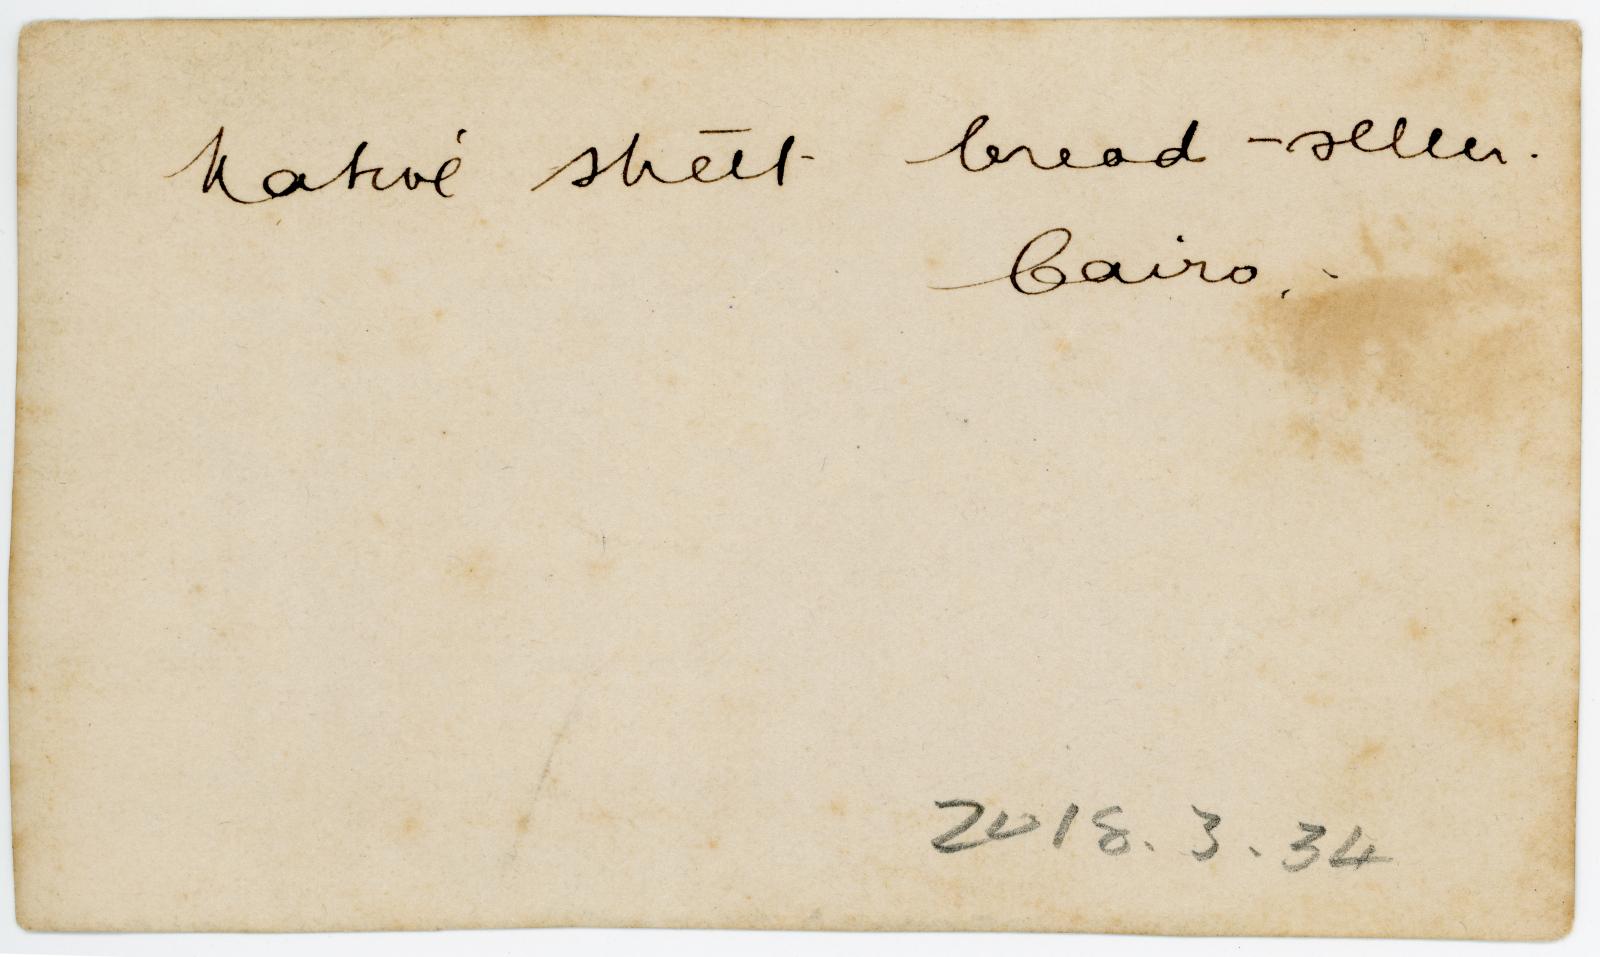 Native street bread-seller.
Cairo.
2018.3.34